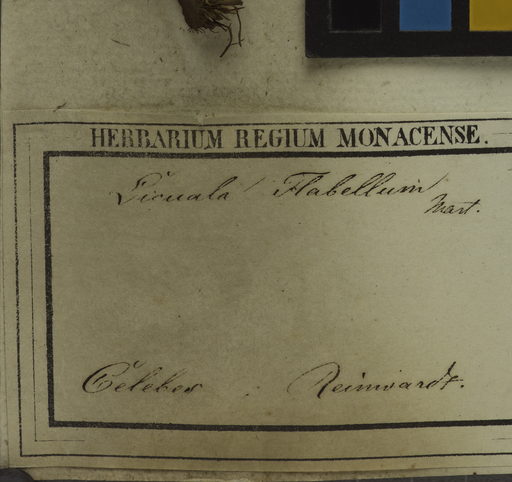 HERBARIUM REGIUM MONACENSE.
Licuala Flabellum
Mart.
Celebes. Reinwardt.